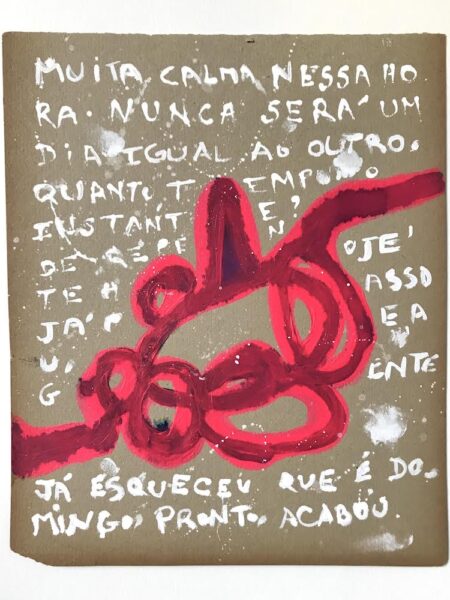 MUITA CALMA NESSA HO
RA. NUNCA SERÁ UM
DIA IGUAL AO OUTRO.
QUANTO T EMPO
INSTANT E?
DE REPE N
TE H OJE
JÁ P ASSO
U, E A
G ENTE
JÁ ESQUECEU QUE É DO-
MINGO, PRONTO, ACABOU.